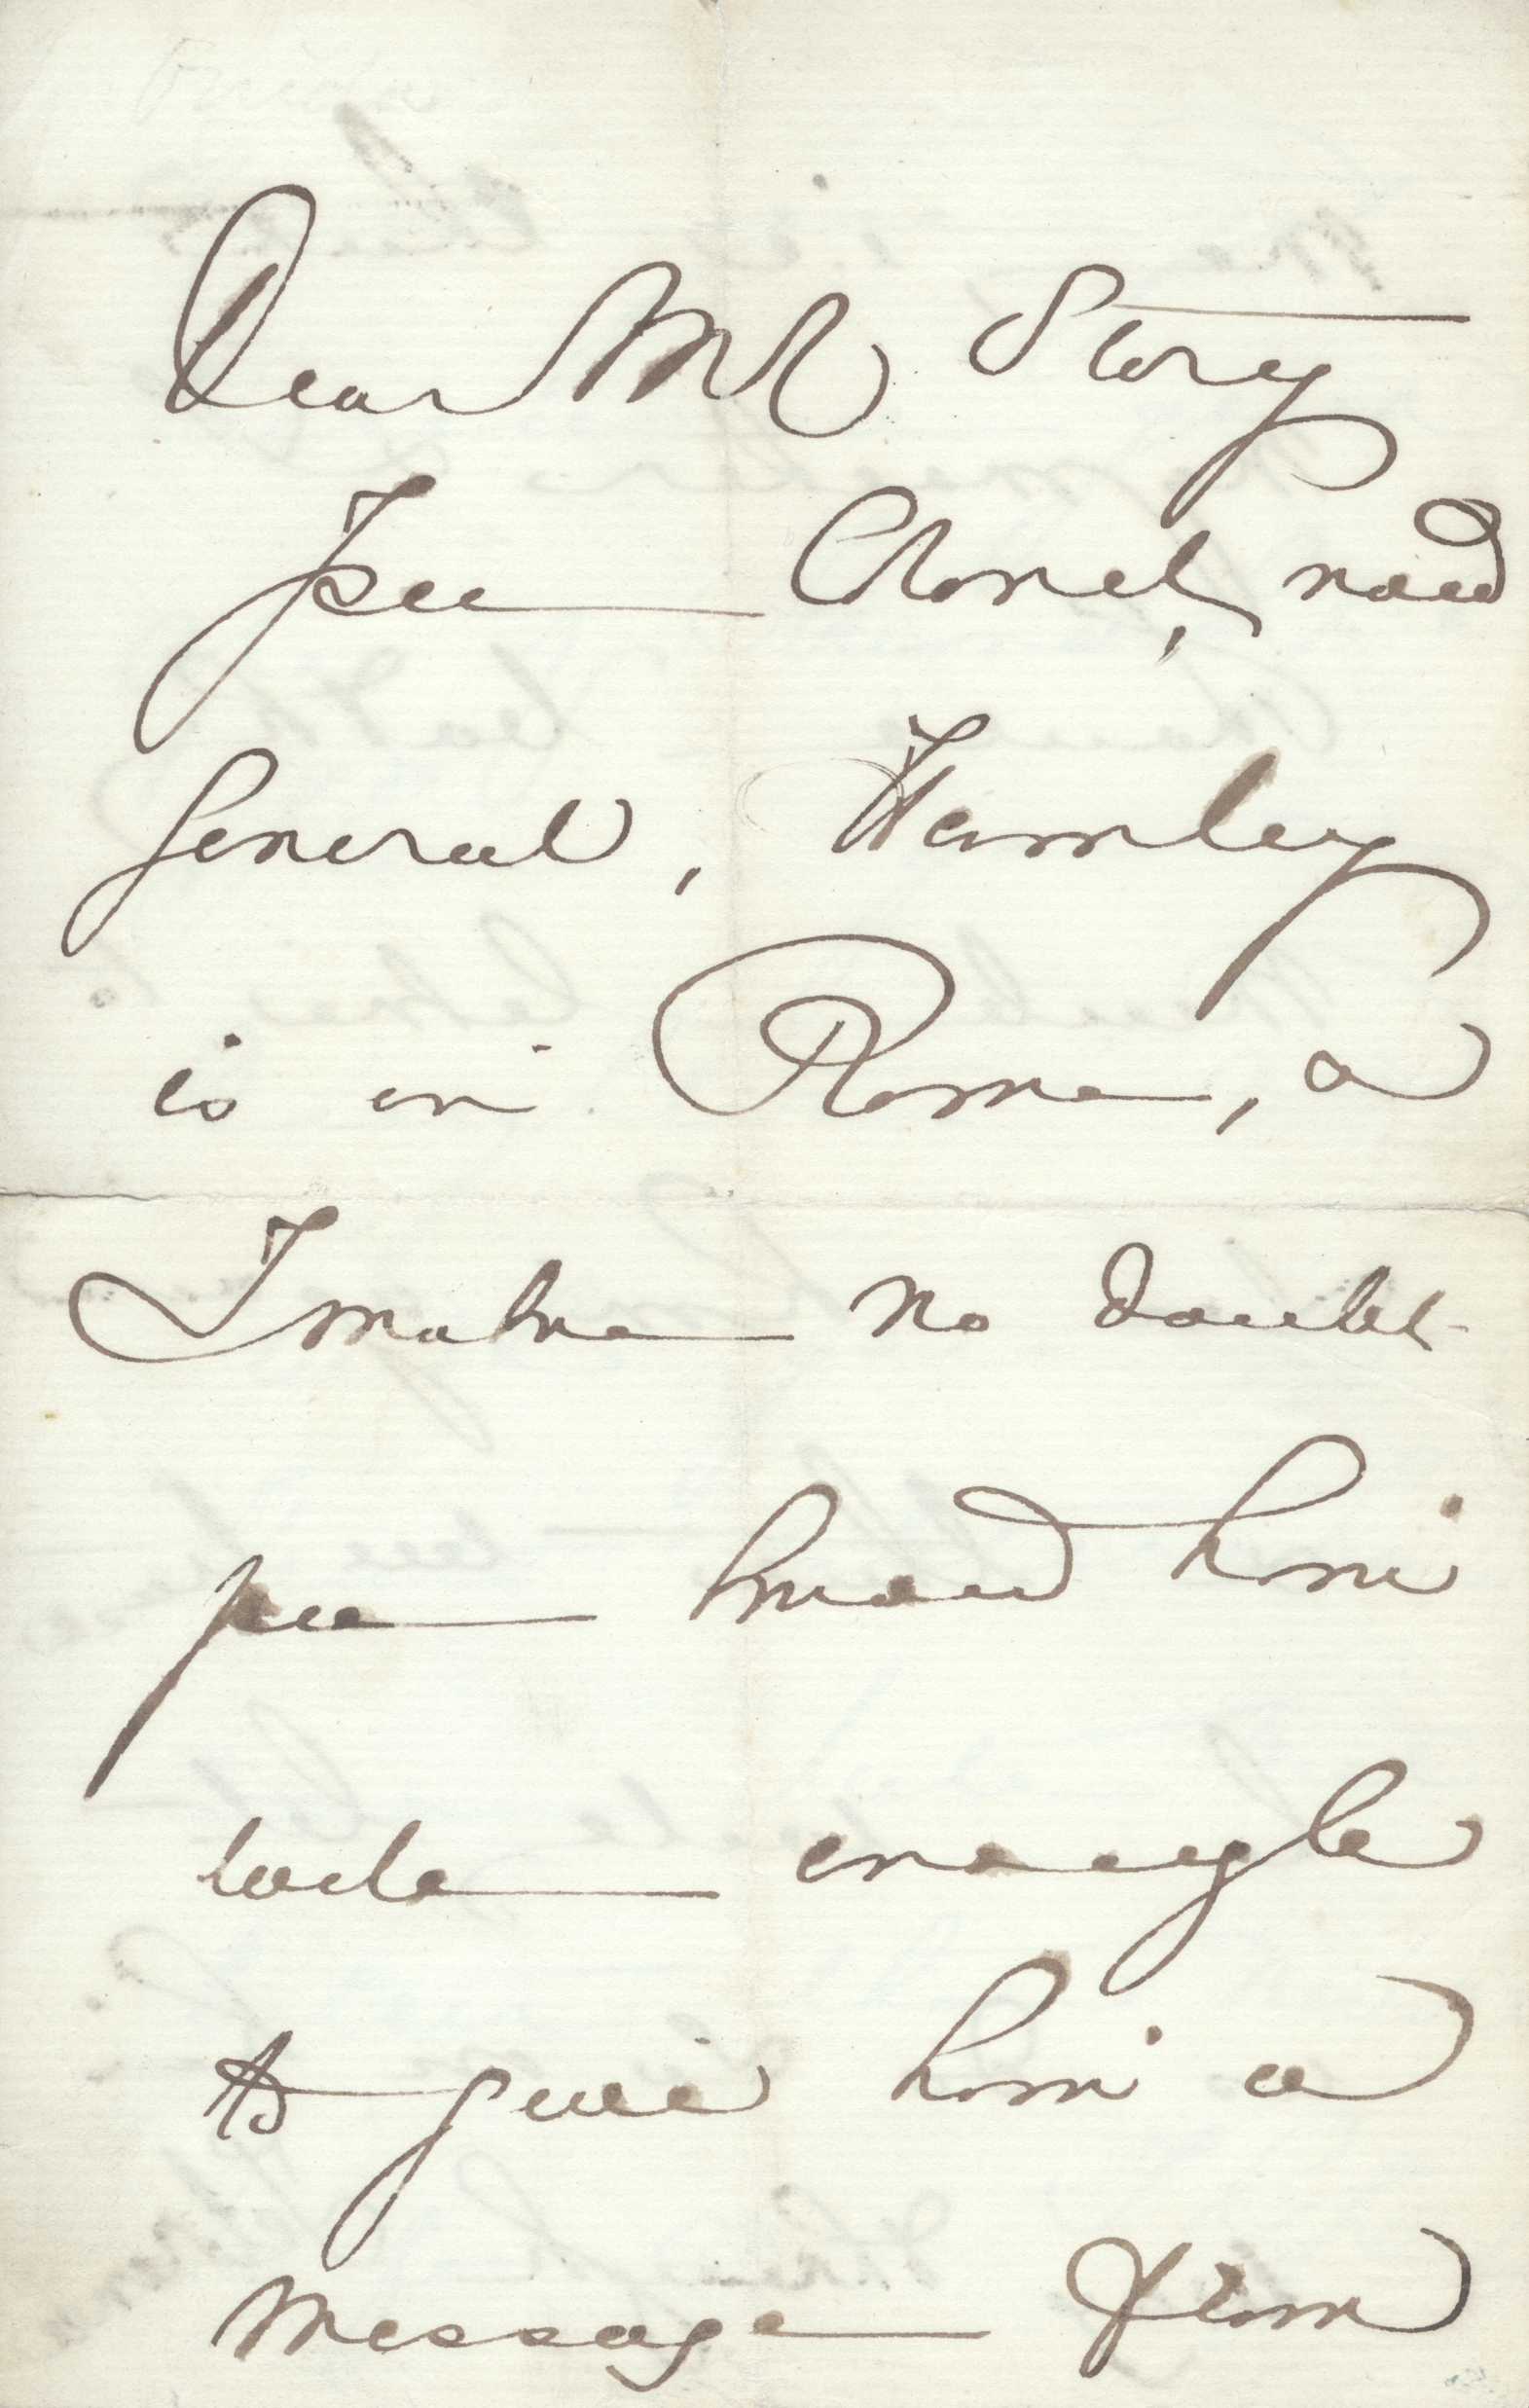 Dear Mr Story
I see Colonel, now
General, Hamley
is in Rome,
I make no doubt
you know him
well enough
to give him a
message from